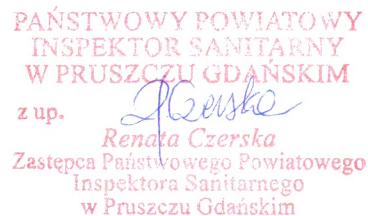 PAŃSTWOWY POWIATOWY
INSPEKTOR SANITARNY
W PRUSZCZU GDAŃSKIM
z up. RCzerska
Renata Czerska
Zastępca Państwowego Powiatowego
Inspektora Sanitarnego
w Pruszczu Gdańskim